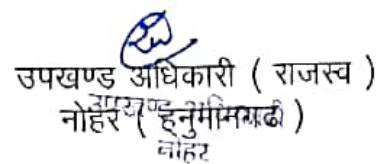 उपखण्ड अधिकारी ( राजस्व )
नोहर ( हनुमानगढ )
उपखण्ड
नोहर